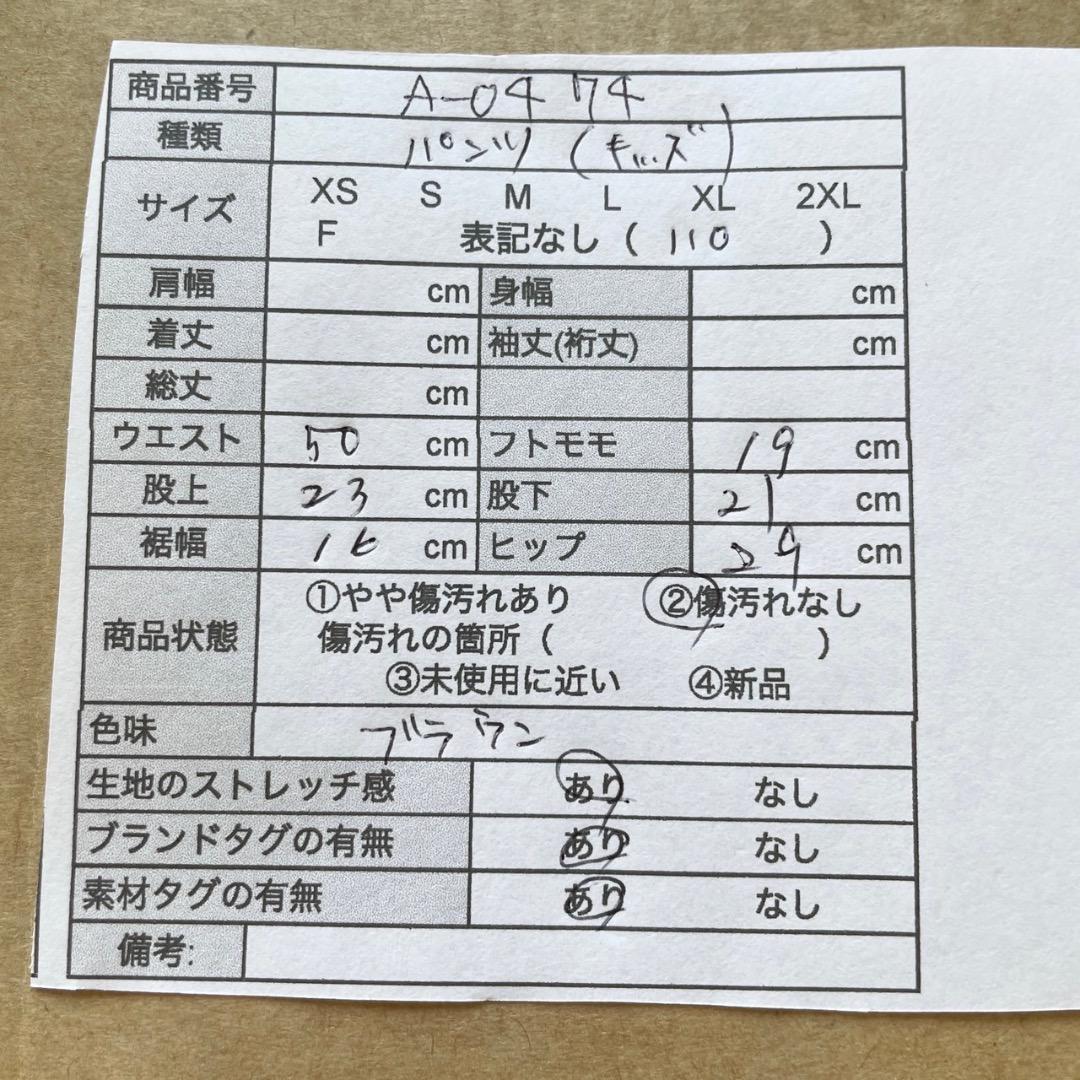 商品番号 A-0474
種類 パンツ (キッズ)
サイズ XS S M L XL 2XL
F 表記なし ( 110 )
肩幅 cm 身幅 cm
着丈 cm 袖丈(裄丈) cm
総丈 cm
ウエスト 50 cm フトモモ 19 cm
股上 23 cm 股下 21 cm
裾幅 16 cm ヒップ 29 cm
商品状態 ①やや傷汚れあり ②傷汚れなし
傷汚れの箇所 ( )
③未使用に近い ④新品
色味 ブラウン
生地のストレッチ感 あり なし
ブランドタグの有無 あり なし
素材タグの有無 あり なし
備考: